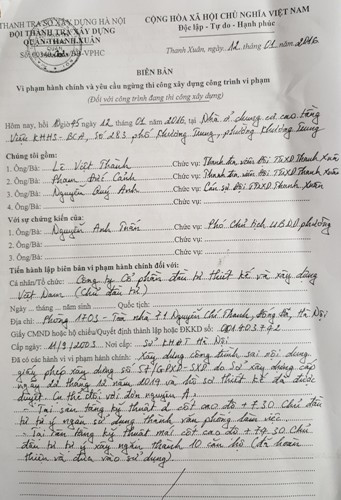 THANH TRA SỞ XÂY DỰNG HÀ NỘI
ĐỘI THANH TRA XÂY DỰNG
QUẬN THANH XUÂN
CỘNG HÒA XÃ HỘI CHỦ NGHĨA VIỆT NAM
Độc lập - Tự do - Hạnh phúc
/BB-VPHC
Thanh Xuân, ngày 12 tháng 01 năm 2016
BIÊN BẢN
Vi phạm hành chính và yêu cầu ngừng thi công xây dựng công trình vi phạm
(Đối với công trình đang thi công xây dựng)
Hôm nay, hồi giờ 45 ngày 12 tháng 01 năm 2016, tại Nhà ở chung cư cao tầng
Viện KHHS-BCA, Số 283 phố Khương Trung, phường Khương Trung
Chúng tôi gồm:
1. Ông/Bà: Lê Việt Thanh Chức vụ: Thanh tra viên Đội TTXD Thanh Xuân
2. Ông/Bà: Phạm Đắc Cảnh Chức vụ: Thanh tra viên Đội TTXD Thanh Xuân
3. Ông/Bà: Nguyễn Quý Anh Chức vụ: Cán sự Đội TTXD Thanh Xuân
4. Ông/Bà: Chức vụ:
Với sự chứng kiến của:
1. Ông/Bà: Nguyễn Anh Tuấn Chức vụ: Phó Chủ tịch UBND phường
2. Ông/Bà: Chức vụ:
Tiến hành lập biên bản vi phạm hành chính đối với:
Cá nhân/Tổ chức: Công ty Cổ phần đầu tư thiết kế và xây dựng
Việt Nam (Chủ đầu tư)
Ngày ... tháng ... năm sinh Quốc tịch:
Địa chỉ: Phòng 1703 - Tòa nhà 71 Nguyễn Chí Thanh, Đống Đa, Hà Nội
Giấy CMND hoặc hộ chiếu/Quyết định thành lập hoặc ĐKKD số: 001403742
Cấp ngày: 11/9/2003 Nơi cấp: Sở KHĐT Hà Nội
Đã có các hành vi vi phạm hành chính: Xây dựng công trình sai nội dung
giấy phép xây dựng số 57/GPXD-SXD do Sở Xây dựng cấp
ngày 22 tháng 12 năm 2014 và hồ sơ thiết kế đã được
duyệt. Cụ thể đối với đơn nguyên A:
- Tại sàn tầng kỹ thuật 2 cốt cao độ +7.30 Chủ đầu
tư tự ý ngăn sử dụng thành văn phòng làm việc.
- Tại sàn tầng kỹ thuật mái cốt cao độ +79.30 Chủ đầu
tư tự ý xây ngăn thành 10 căn hộ (đã hoàn
thiện và đưa vào sử dụng).